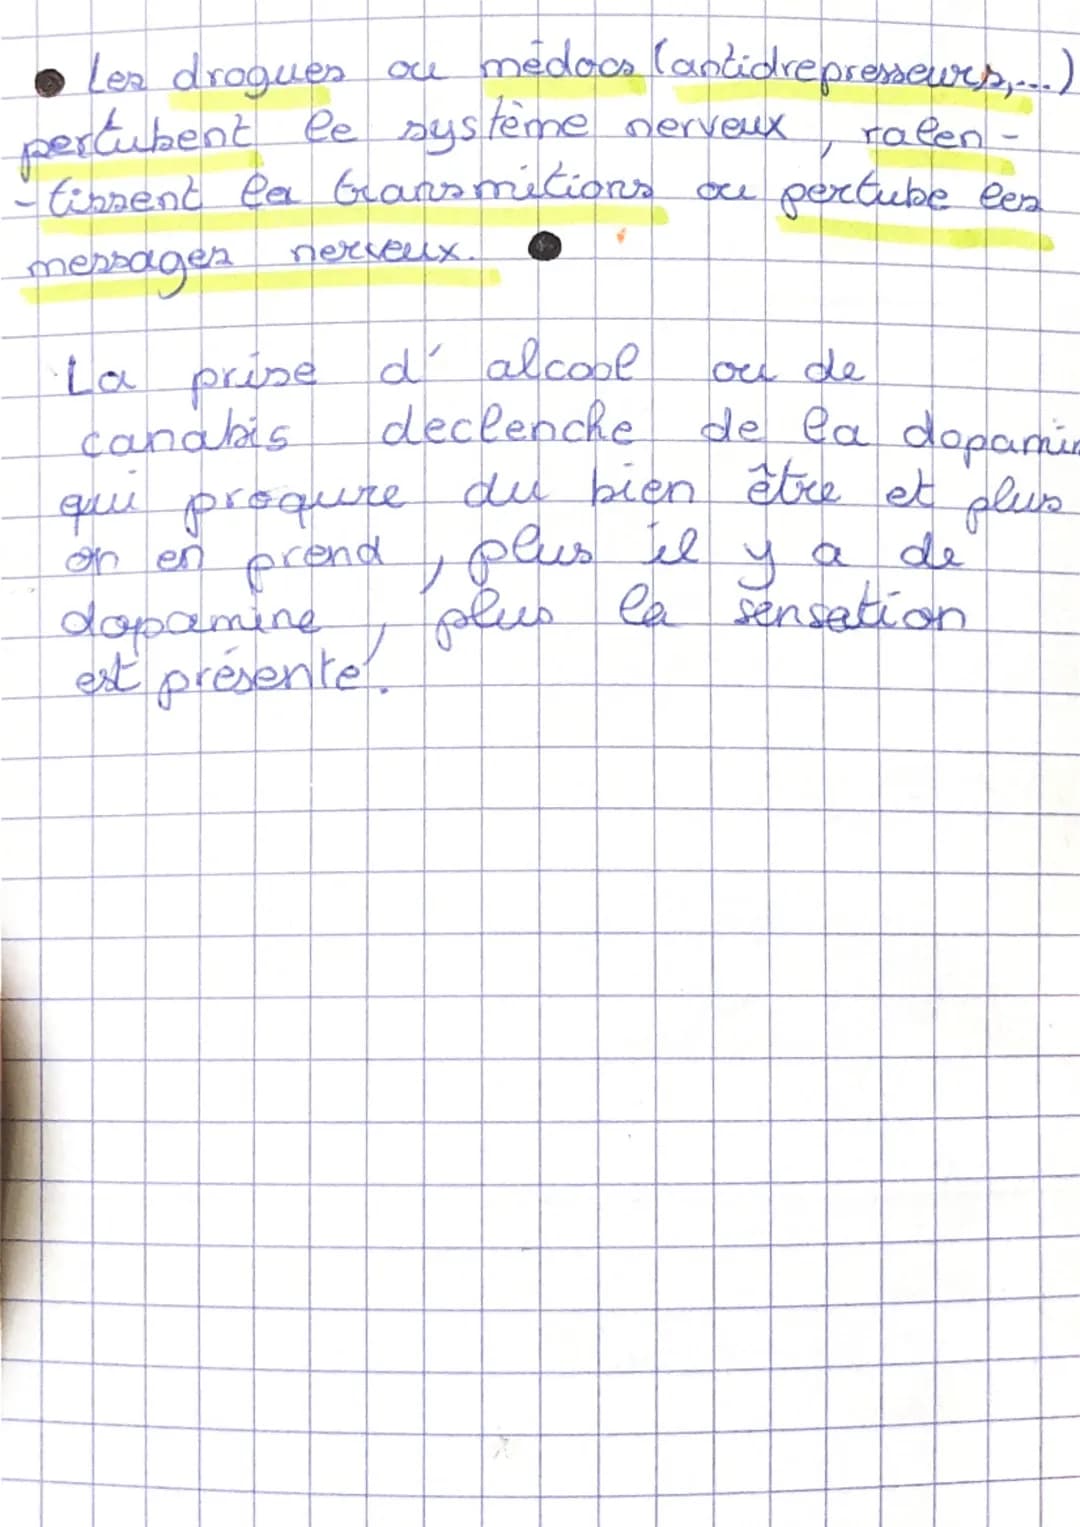 ● Les drogues ou médocs (antidrepresseurs,...)
pertubent le système nerveux, ralen-
-tissent la transmitions ou pertube les
messages nerveux. ●
La prise d'alcool ou de
canabis declenche de la dopamin
qui proqure du bien être et plus
on en prend, plus il y a de
dopamine, plus la sensation
est présente.